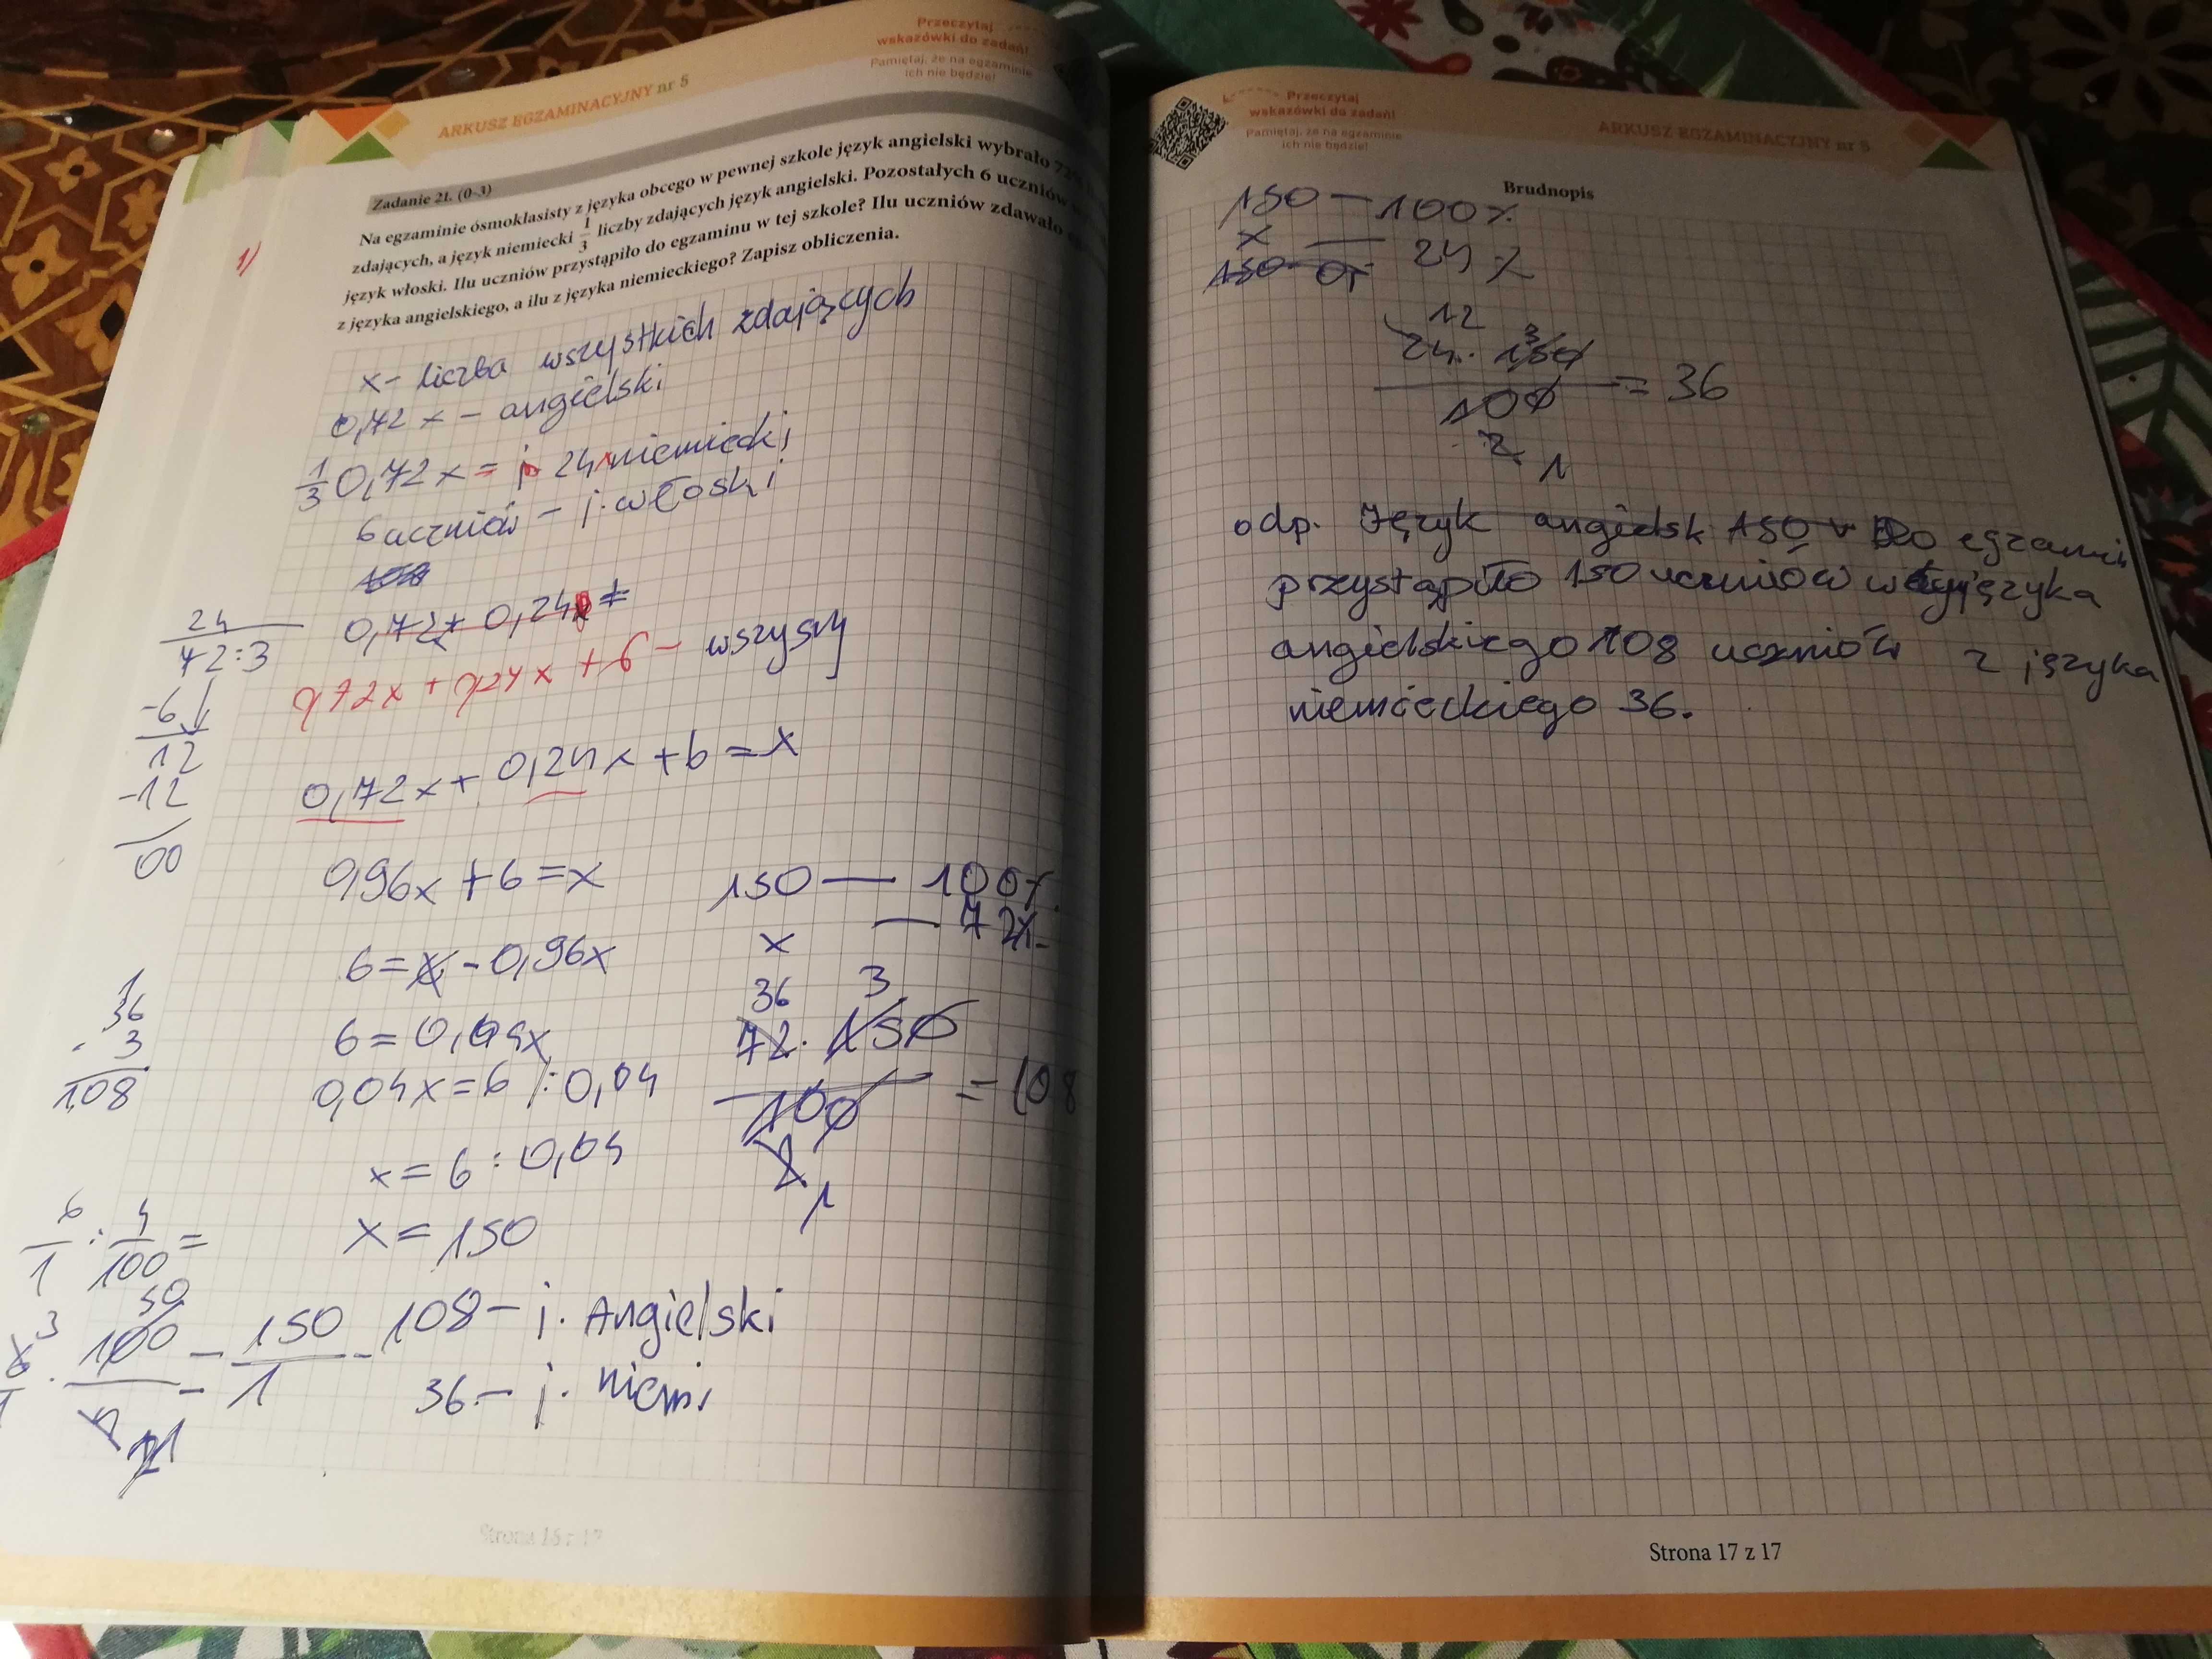 ARKUSZ EGZAMINACYJNY nr 5
Przeczytaj
wskazówki do zadań!
Pamiętaj, że na egzaminie
ich nie będzie!
Zadanie 21. (0-3)
Na egzaminie ósmoklasisty z języka obcego w pewnej szkole język angielski wybrało 72%
zdających, a język niemiecki 1/3 liczby zdających język angielski. Pozostałych 6 uczniów
język włoski. Ilu uczniów przystąpiło do egzaminu w tej szkole? Ilu uczniów zdawało
z języka angielskiego, a ilu z języka niemieckiego? Zapisz obliczenia.
1)
x - liczba wszystkich zdających
0,72 x - angielski
1/3 0,72 x = 24x niemiecki
6 uczniów - j. włoski
0,72 + 0,24x =
0,72x + 0,24x + 6 - wszyscy
24
72:3
-6
12
-12
00
0,72x + 0,24x + 6 = x
0,96x + 6 = x
6 = x - 0,96x
6 = 0,04x
0,04x = 6 /: 0,04
x = 6 : 0,04
x = 150
150 — 100%
x — 72%
36 3
72 · 150
100
= 108
2
1
1
36
· 3
108
6/1 : 4/100 =
3 50
6/1 · 100 = 150/1
2 1
108 - j. Angielski
36 - j. niemi
Strona 16 z 17
Przeczytaj
wskazówki do zadań!
Pamiętaj, że na egzaminie
ich nie będzie!
ARKUSZ EGZAMINACYJNY nr 5
Brudnopis
150 — 100%
x — 24%
150
12 3
24 · 150
100
= 36
2
1
odp. Język angielsk 150 v Do egzamin
przystąpiło 150 uczniów w języka
angielskiego 108 uczniów z języka
niemieckiego 36.
Strona 17 z 17